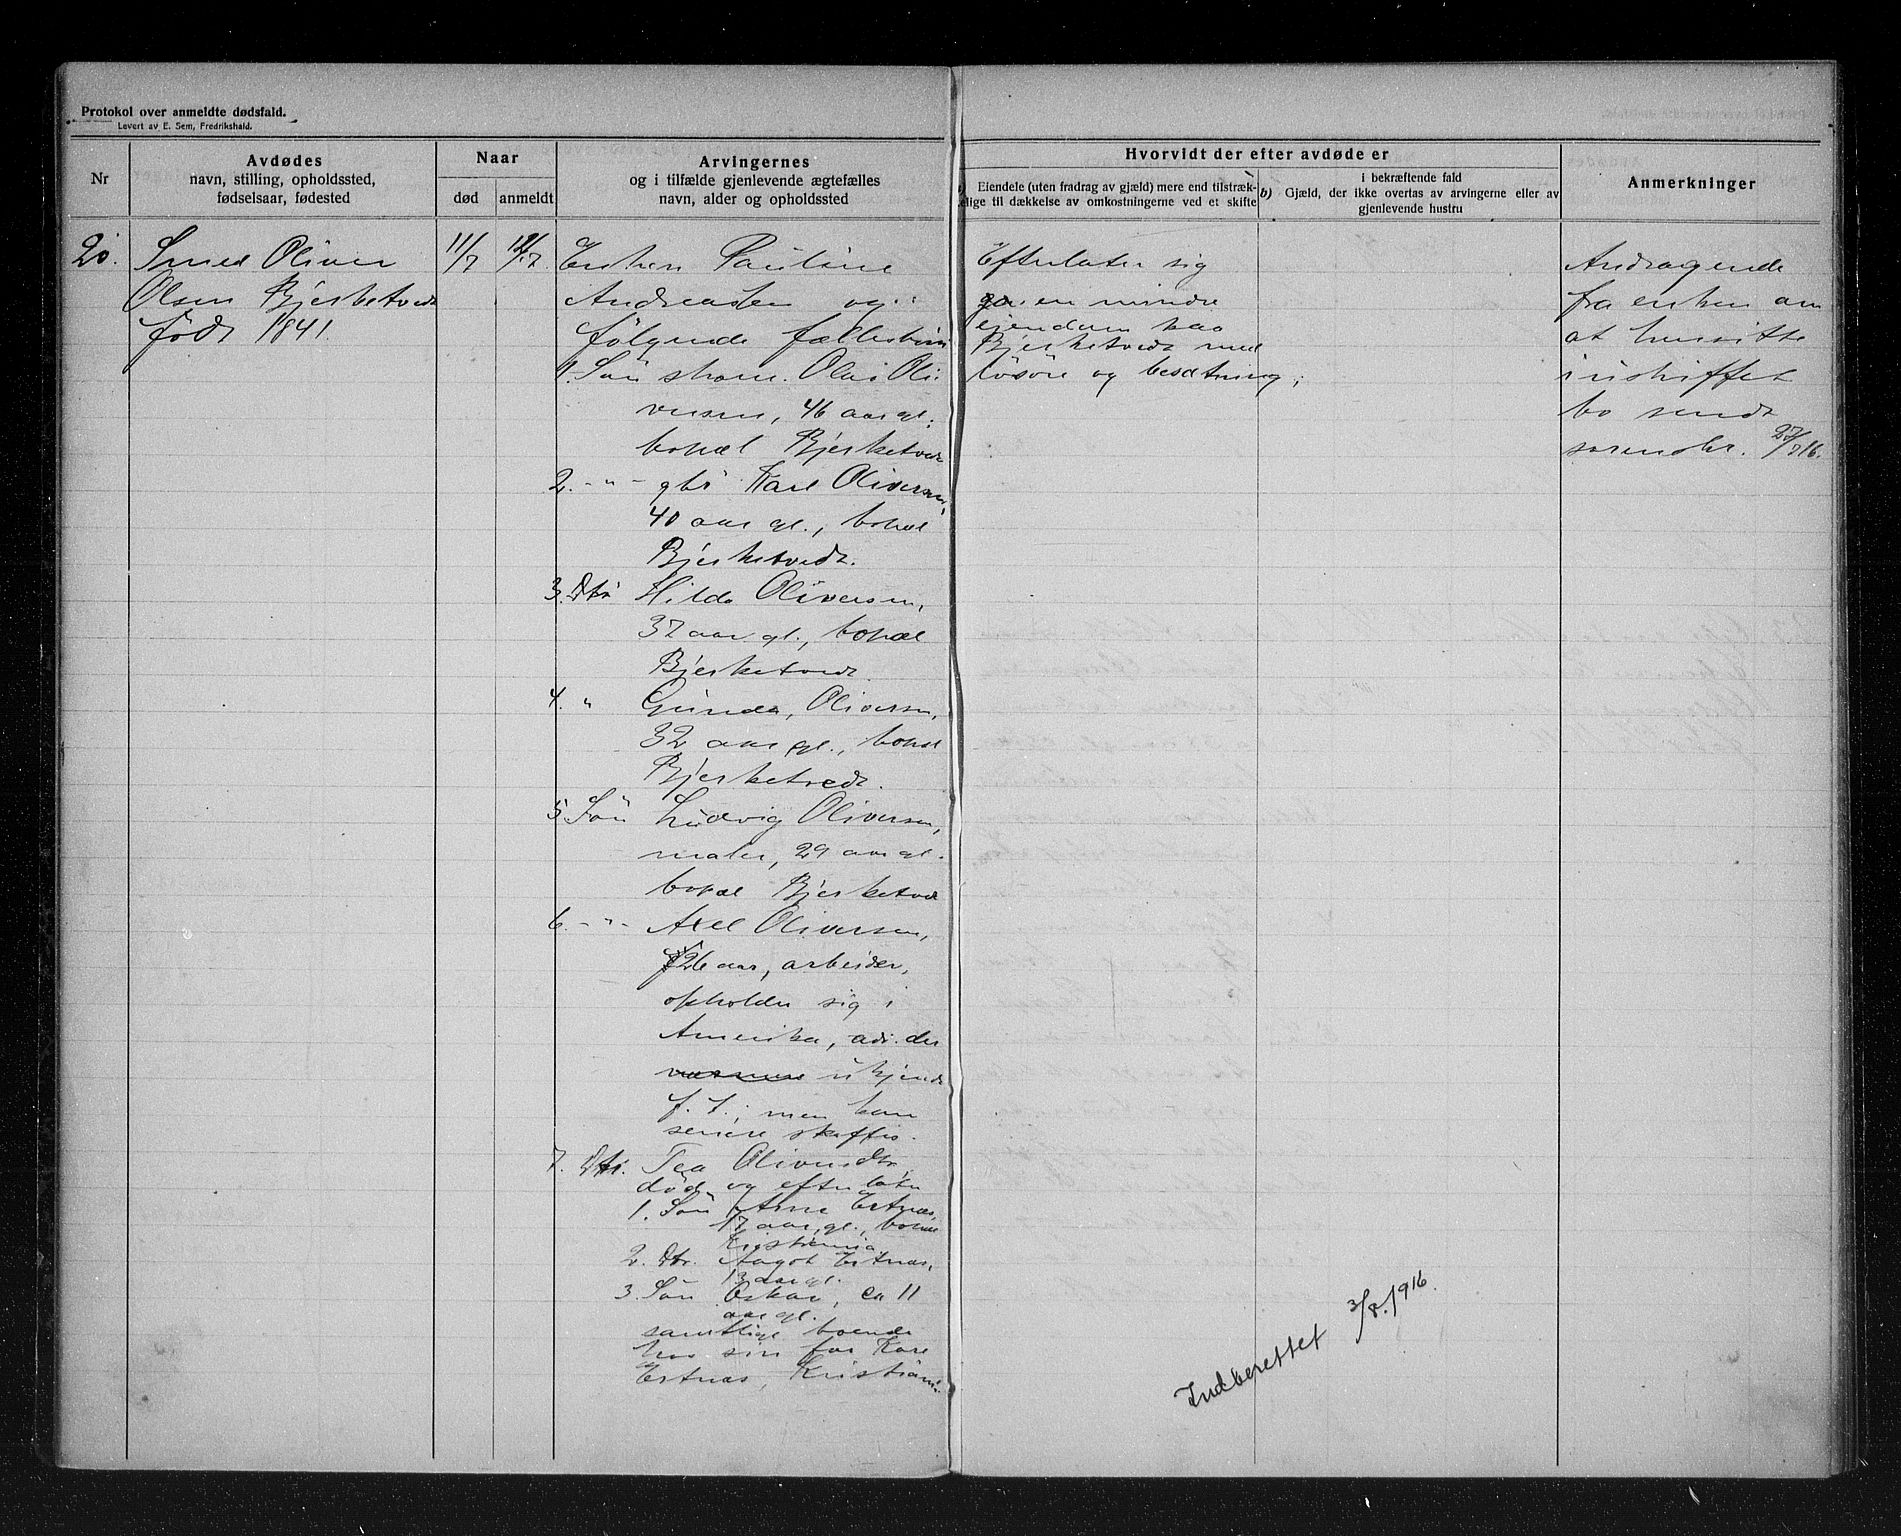 Protokol over anmeldte dødsfald.
Levert av E. Sem, Fredrikshald.
Nr
Avdødes
navn, stilling, opholdssted,
fødselsaar, fødested
Naar
død
anmeldt
Arvingernes
og i tilfælde gjenlevende ægtefælles
navn, alder og opholdssted
Hvorvidt der efter avdøde er
Eiendele (uten fradrag av gjæld) mere end tilstræk-
elige til dækkelse av omkostningerne ved et skifte
i bekræftende fald
b) Gjæld, der ikke overtas av arvingerne eller av
gjenlevende hustru
Anmerkninger
20.
Smed Oliver
Olsen Bjerketvedt
født 1841.
11/7
Enken Pauline
Andreasen og
følgende fællesbørn
1. Søn skom. Olai Oli-
versen, 46 aar gl.
bopæl Bjerketvedt
2. - " - gbr Karl Oliversen,
40 aar gl., bopæl
Bjerketvedt.
3. Dtr Hilda Oliversen,
37 aar gl., bopæl
Bjerketvedt.
4. " Gunda, Oliversen,
32 aar gl., bopæl
Bjerketvedt.
5. Søn Ludvig Oliversen,
maler, 29 aar gl.
bopæl Bjerketvedt
6. - " - Axel Oliversen,
26 aar, arbeider,
opholder sig i
Amerika, adr. der
ukjendt
f. t., men kan
senere skaffes.
7. Dtr. Tea Oliversdtr,
død og efterlater
1. Søn Arne Estnæs,
17 aar gl., bopæl
Kristiania
2. Dtr. Aagot Estnæs,
13 aar gl.
3. Søn Oskar, ca 11
aar gl.
samtlige boende
hos sin far Kare
Estnæs, Kristiania
Efterlater sig
en mindre
eiendom paa
Bjerketvedt med
løsøre og besætning;
Andragende
fra enken om
at hensitte
i uskiftet
bo sendt
sorenskr. 27/7 16.
Indberettet 3/8.1916.